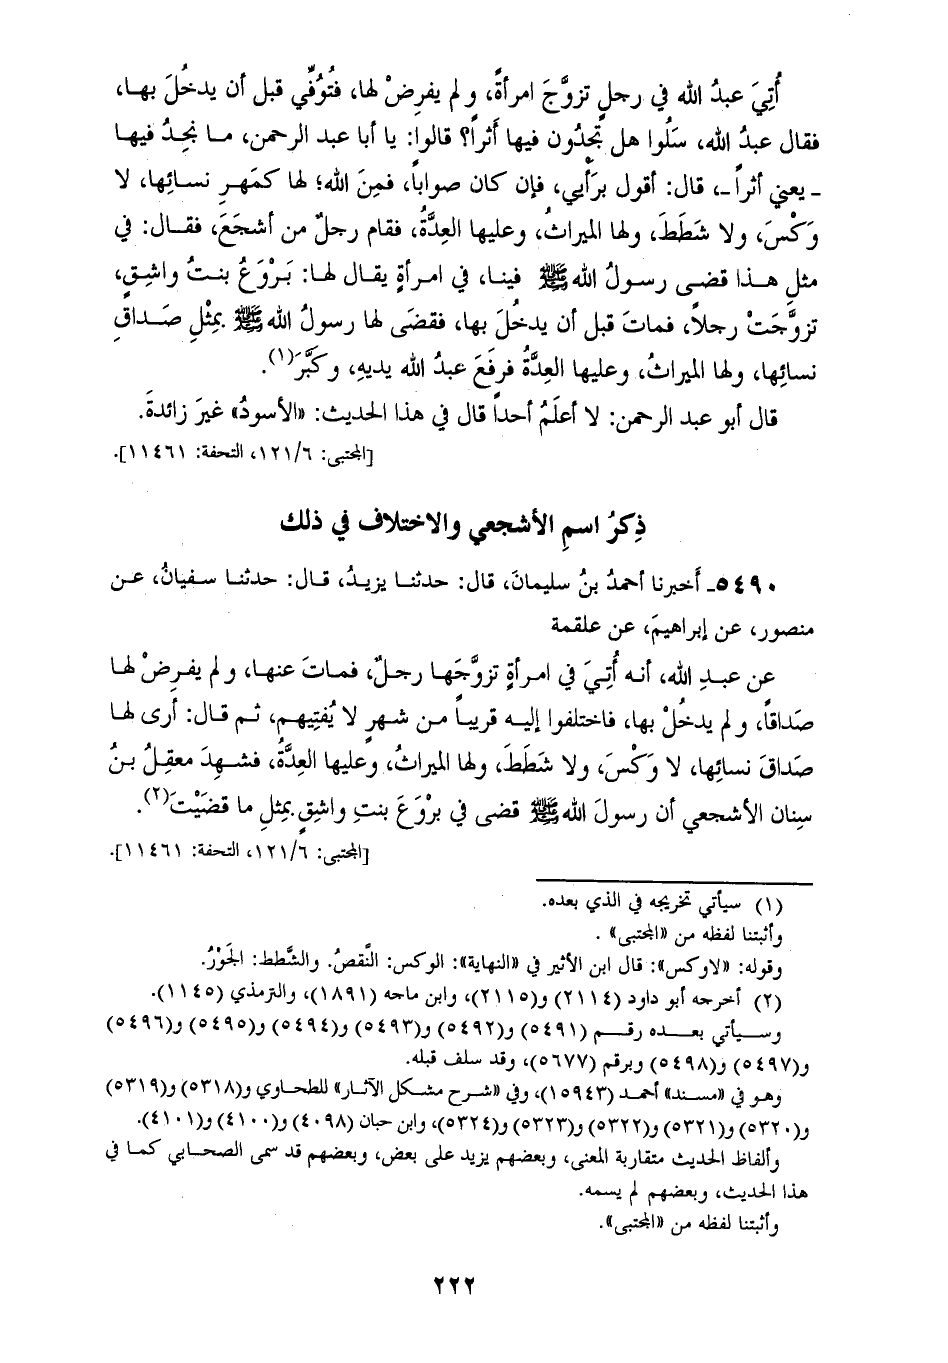 أُتِيَ عبدُ الله في رجلٍ تزوَّجَ امرأةً، ولم يفرِضْ لها، فتُوُفِّي قبل أن يدخُلَ بها،
فقال عبدُ الله، سَلُوا هل تجِدُون فيها أَثراً؟ قالوا: يا أبا عبد الرحمن، ما نجِدُ فيها
ـ يعني أثراً ـ، قال: أقول برَأيي، فإن كان صواباً، فمِنَ الله؛ لها كمَهرِ نسائِها، لا
وَكْسَ، ولا شَطَطَ، ولها الميراثُ، وعليها العِدَّةُ، فقام رجلٌ من أشجَعَ، فقال: في
مثلِ هذا قضى رسولُ الله ﷺ فينا، في امرأةٍ يقال لها: بَرْوَعُ بنتُ واشِقٍ،
تزوَّجَتْ رجلاً، فماتَ قبل أن يدخُلَ بها، فقضَى لها رسولُ الله ﷺ بمِثْلِ صَداقِ
نسائِها، ولها الميراثُ، وعليها العِدَّةُ فرفَعَ عبدُ الله يديهِ، وكَبَّرَ(١).
قال أبو عبد الرحمن: لا أعلَمُ أحداً قال في هذا الحديث: «الأسودُ» غيرَ زائدةَ.
[المجتبى: ١٢١/٦، التحفة: ١١٤٦١].
ذِكرُ اسمِ الأشجعي والاختلاف في ذلك
٥٤٩٠ـ أَخبرنا أحمدُ بنُ سليمانَ، قال: حدثنا يزيدُ، قال: حدثنا سفيانُ، عن
منصور، عن إبراهيمَ، عن علقمة
عن عبدِ الله، أنه أُتِيَ في امرأةٍ تزوَّجَها رجلٌ، فماتَ عنها، ولم يفرِضْ لها
صَداقاً، ولم يدخُلْ بها، فاختلفوا إليه قريباً من شهرٍ لا يُفتِيهم، ثم قال: أرى لها
صَداقَ نسائِها، لا وَكْسَ، ولا شطَطَ، ولها الميراثُ، وعليها العِدَّةُ، فشهِدَ معقِلُ بنُ
سِنان الأشجعي أن رسولَ الله ﷺ قضى في بِرْوَعَ بنتِ واشِقٍ بمِثلِ ما قضَيْتَ(٢).
[المجتبى: ١٢١/٦، التحفة: ١١٤٦١].
(١) سيأتي تخريجه في الذي بعده.
وأثبتنا لفظه من «المجتبى» .
وقوله: «لاوكس»: قال ابن الأثير في «النهاية»: الوكس: النَّقصُ. والشَّطط: الجَوْرُ.
(٢) أخرجه أبو داود (٢١١٤) و(٢١١٥)، وابن ماجه (١٨٩١)، والترمذي (١١٤٥).
وسيأتي بعده رقم (٥٤٩١) و(٥٤٩٢) و(٥٤٩٣) و(٥٤٩٤) و(٥٤٩٥) و(٥٤٩٦)
و(٥٤٩٧) و(٥٤٩٨) وبرقم (٥٦٧٧)، وقد سلف قبله.
وهو في «مسند» أحمد (١٥٩٤٣)، وفي «شرح مشكل الآثار» للطحاوي و(٥٣١٨) و(٥٣١٩)
و(٥٣٢٠) و(٥٣٢١) و(٥٣٢٢) و(٥٣٢٣) و(٥٣٢٤)، وابن حبان (٤٠٩٨) و(٤١٠٠) و(٤١٠١).
وألفاظ الحديث متقاربة المعنى، وبعضهم يزيد على بعض، وبعضهم قد سمى الصحابي كما في
هذا الحديث، وبعضهم لم يسمه.
وأثبتنا لفظه من «المجتبى».
٢٢٢